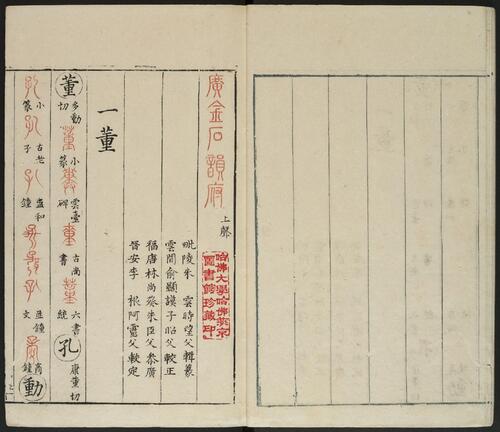 廣金石韻府 上聲
毗陵朱 雲時望父輯篆
雲間俞顯謨子昭父較正
福唐林尚葵朱臣父參廣
晉安李 根阿靈父較定
哈佛大學哈佛燕京
圖書館珍藏印
一董
董 多動切 小篆 雲臺碑 古尚書 六書統 孔 康董切
小篆 古老子 盄和鐘 文 商鐘 動